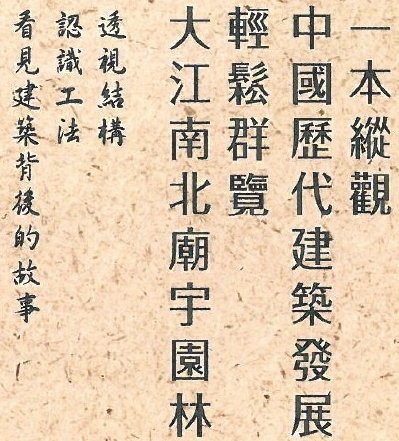 一本縱觀
中國歷代建築發展
輕鬆群覽
大江南北廟宇園林
透視結構
認識工法
看見建築背後的故事